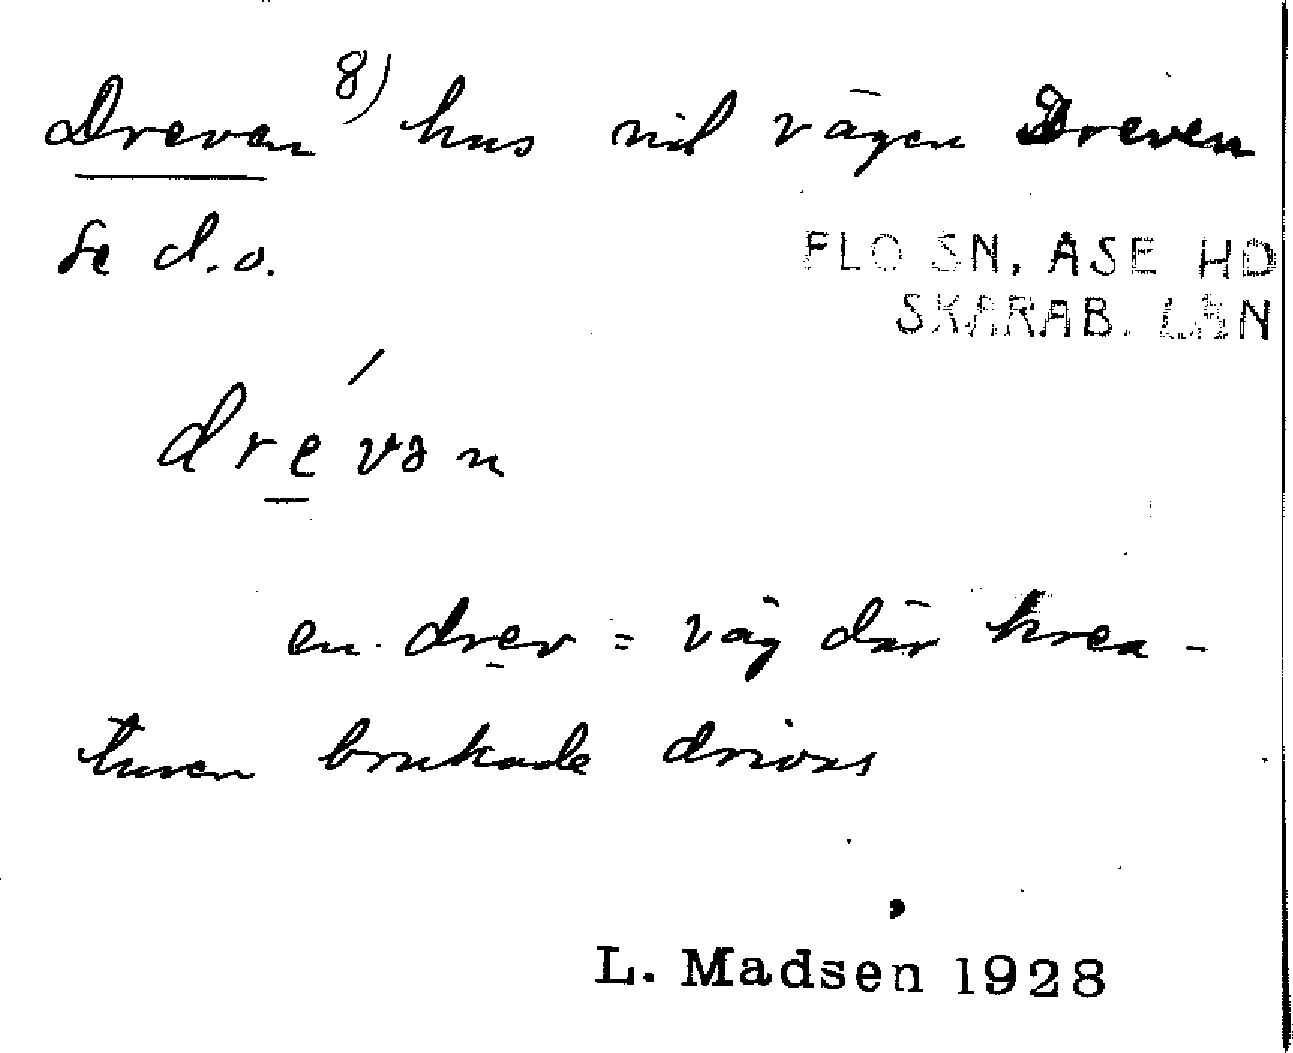 Dreven 8) hus vid vägen Dreven
se d.o.
FLO SN, ÅSE HD
SKARAB. LÄN
drévən
en drev = väg där krea-
turen brukade drivas
L. Madsen 1928